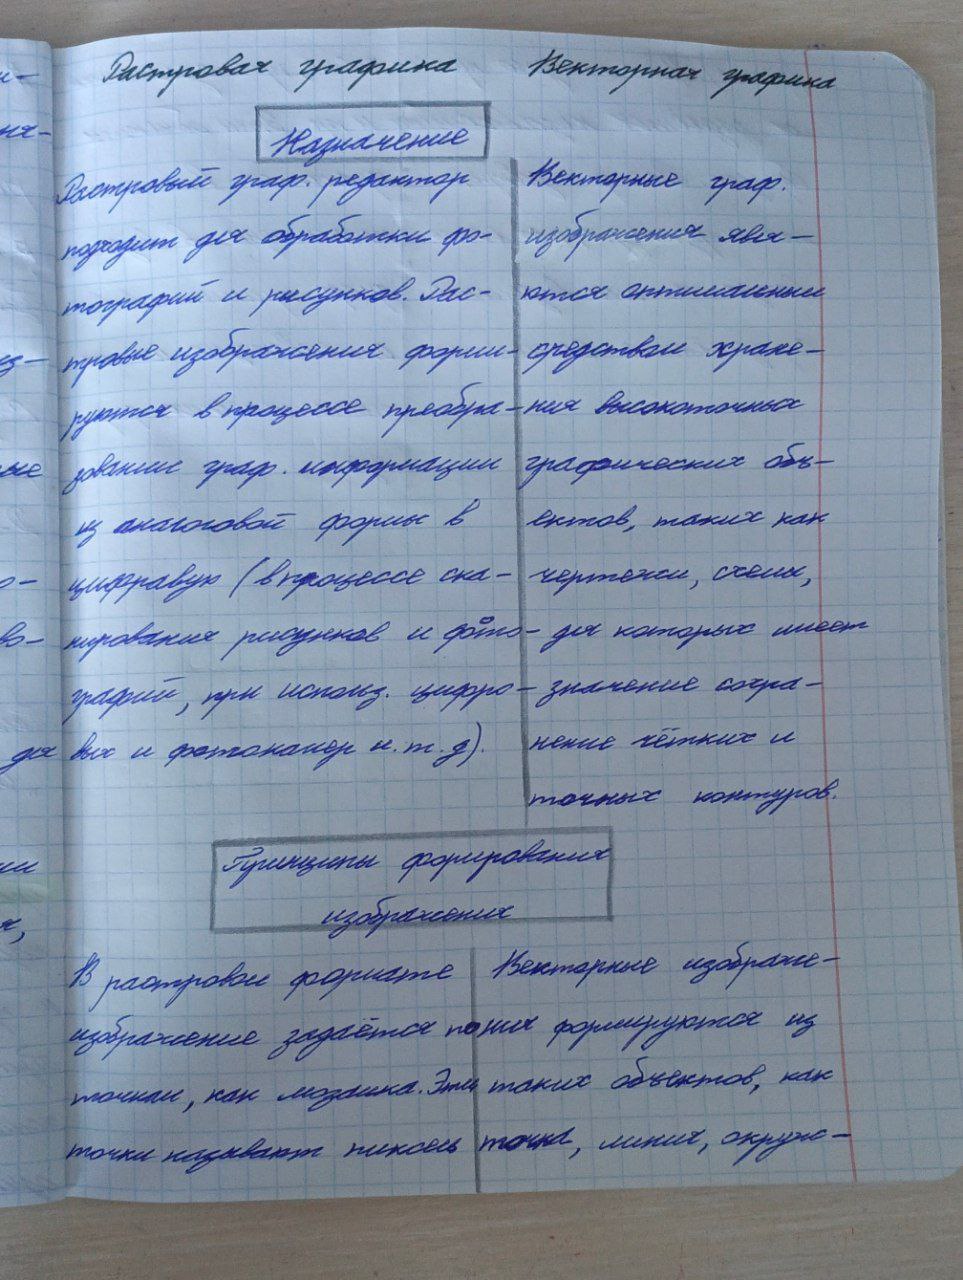 Растровая графика
Векторная графика
Назначение
Растровый граф. редактор
подходит для обработки фо-
тографий и рисунков. Рас-
тровые изображения форми-
руются в процессе преобра-
зовании граф. информации
из аналоговой формы в
цифравую (в процессе ска-
нирования рисунков и фото-
графий, при использ. цифро-
вых и фотокамер и.т.д).
Векторные граф.
изображения явля-
ются оптимальным
средством хране-
ния высокоточных
графических объ-
ектов, таких как
чертежи, схемы,
для которых имеет
значение сохра-
нение чётких и
точных контуров.
Принципы формирования
изображения
В растровом формате
изображение задаётся по
точкам, как мозаика. Эти
точки называют пиксель
Векторные изображе-
ния формируются из
таких объектов, как
точка, линия, окруж-
ые
о-
во-
для
ии
я,